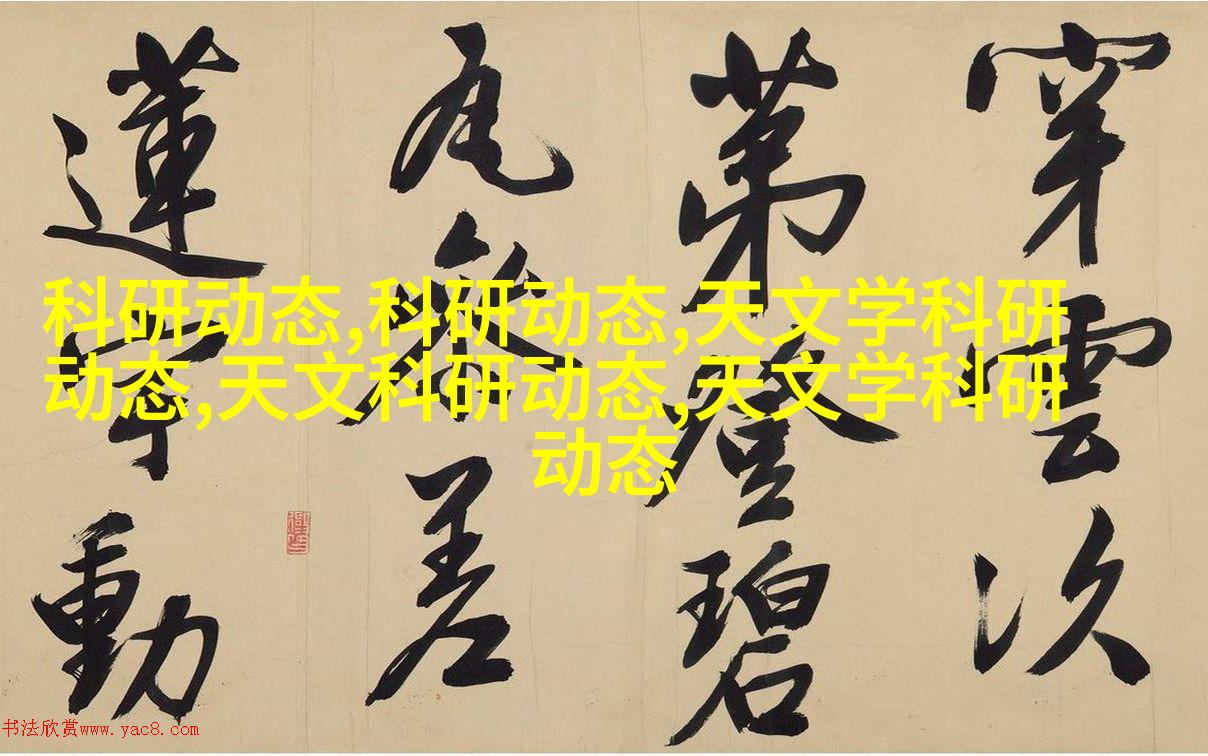 穿雲次
苐登碧
瓦叅差
蓮宇動
科研动态,科研动态,天文学科研
动态,天文科研动态,天文学科研
动态
书法欣赏www.yac8.com